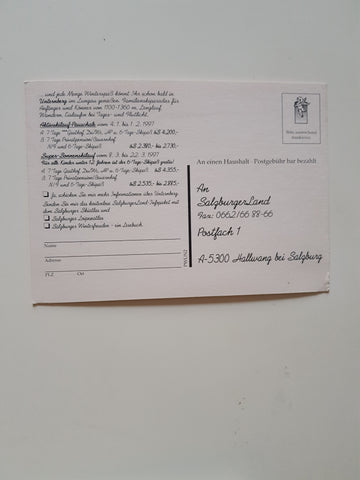 ... und jede Menge Winterspaß könnt Ihr schon bald in
Unternberg im Lungau genießen. Familienskiparadies für
Anfänger und Könner von 1100-1360 m, Langlauf,
Wandern, Eislaufen bei Tages- und Flutlicht.
Aktivskilauf-Pauschale vom 4. 1. bis 1. 2. 1997
A: 7 Tage Gasthof Du/Wc, HP u. 6 Tage-Skipaß öS 4.200,-
B: 7 Tage Privatpension/Bauernhof
N/F und 6 Tage-Skipaß öS 2.380,- bis 2.730,-
Super-Sonnenskilauf vom 8. 3. bis 22. 3. 1997
Für alle Kinder unter 12 Jahren ist der 6-Tage-Skipaß gratis!
A: 7 Tage Gasthof Du/Wc, HP u. 6 Tage-Skipaß öS 4.355,-
B: 7 Tage Privatpension/Bauernhof
N/F und 6 Tage-Skipaß öS 2.535,- bis 2.885,-
Ja, schicken Sie mir mehr Informationen über Unternberg
Senden Sie mir das kostenlose SalzburgerLand-Infopaket mit
dem Salzburger Skiatlas und
Salzburger Loipenatlas
Salzburger Winterfreuden - ein Lesebuch
Name
Adresse
PLZ Ort
PM/UN2
Bitte
An einen Haushalt Postgebühr bar bezahlt
An
SalzburgerLand
Fax: 0662/66 88-66
Postfach 1
A-5300 Hallwang bei Salzburg